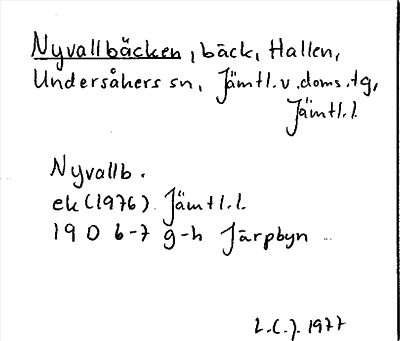 Nyvallbäcken, bäck, Hallen,
Undersåkers sn, Jämtl.v.doms.tg,
Jämtl.l.
Nyvallb.
ek (1976) Jämtl.l.
19D 6-7 g-h Järpbyn
L.C.J. 1977